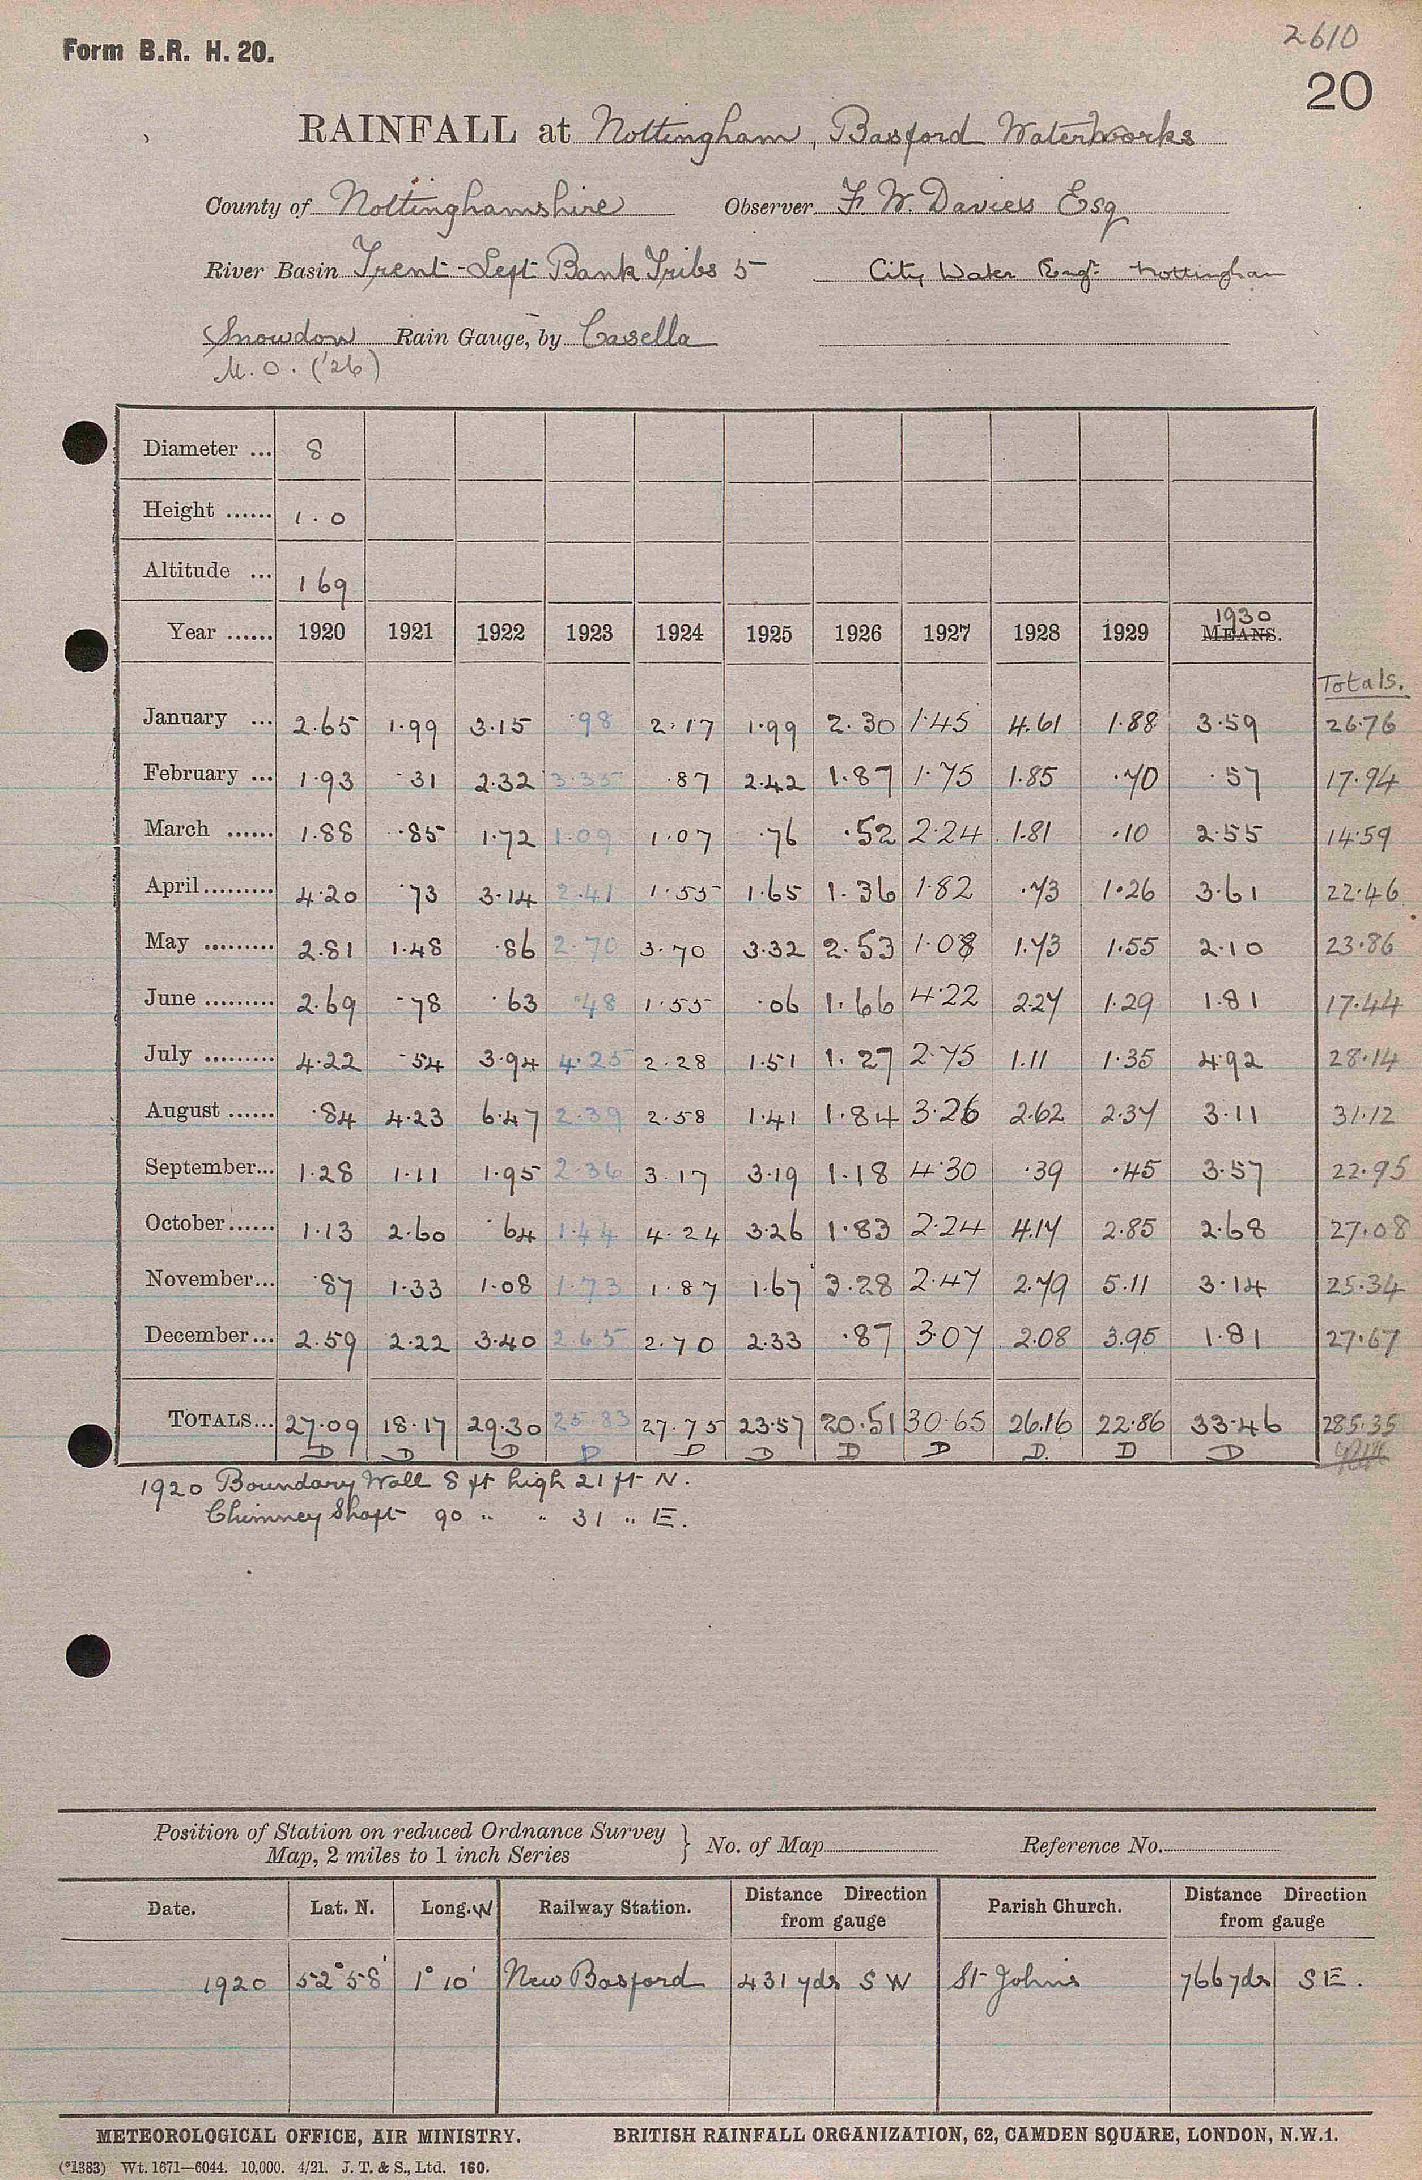 2610
Form B.R. H. 20.
20
RAINFALL at Nottingham, Basford Waterworks
County of Nottinghamshire Observer F. W. Davies Esq
River Basin Trent-Left Bank Tribs 5 City Water Engr. Nottingham
Snowdon Rain Gauge, by Casella
M.O. ('26)
Diameter ... 8
Height ...... 1.0
Altitude ... 169
Year ...... 1920 1921 1922 1923 1924 1925 1926 1927 1928 1929 1930 MEANS.
Totals.
January ... 2.65 1.99 3.15 .98 2.17 1.99 2.30 1.45 4.61 1.88 3.59 26.76
February ... 1.93 .31 2.32 3.35 .87 2.42 1.87 1.75 1.85 .70 .57 17.94
March ...... 1.88 .85 1.72 1.09 1.07 .76 .52 2.24 1.81 .10 2.55 14.59
April ......... 4.20 .73 3.14 2.41 1.55 1.65 1.36 1.82 .73 1.26 3.61 22.46
May ......... 2.81 1.48 .86 2.70 3.70 3.32 2.53 1.08 1.73 1.55 2.10 23.86
June ......... 2.69 .78 .63 .48 1.55 .06 1.66 4.22 2.27 1.29 1.81 17.44
July ......... 4.22 .54 3.94 4.25 2.28 1.51 1.27 2.75 1.11 1.35 4.92 28.14
August ...... .84 4.23 6.47 2.39 2.58 1.41 1.84 3.26 2.62 2.37 3.11 31.12
September... 1.28 1.11 1.95 2.36 3.17 3.19 1.18 4.30 .39 .45 3.57 22.95
October...... 1.13 2.60 .64 1.44 4.24 3.26 1.83 2.24 4.17 2.85 2.68 27.08
November... .87 1.33 1.08 1.73 1.87 1.67 3.28 2.47 2.79 5.11 3.14 25.34
December... 2.59 2.22 3.40 2.65 2.70 2.33 .87 3.07 2.08 3.95 1.81 27.67
TOTALS... 27.09 18.17 29.30 25.83 27.75 23.57 20.51 30.65 26.16 22.86 33.46 285.35
D D D D D D D D D. D D
1920 Boundary Wall 8 ft high 21 ft N.
Chimney Shaft 90 " " 31 " E.
Position of Station on reduced Ordnance Survey Map, 2 miles to 1 inch Series } No. of Map Reference No.
Date. Lat. N. Long. W Railway Station. Distance Direction from gauge Parish Church. Distance Direction from gauge
1920 52°58' 1°10' New Basford 431 yds SW St Johns 766 yds SE.
METEOROLOGICAL OFFICE, AIR MINISTRY. BRITISH RAINFALL ORGANIZATION, 62, CAMDEN SQUARE, LONDON, N.W.1.
(*1383) Wt. 1671—6044. 10,000. 4/21. J. T. & S., Ltd. 160.